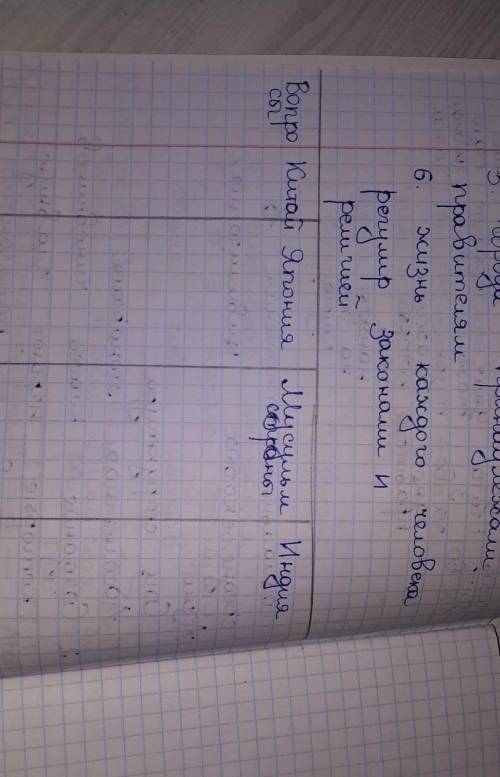 правителям
6. жизнь каждого человека
регулир законами и
религией
Вопро Китай Япония Мусульм Индия
сы страны